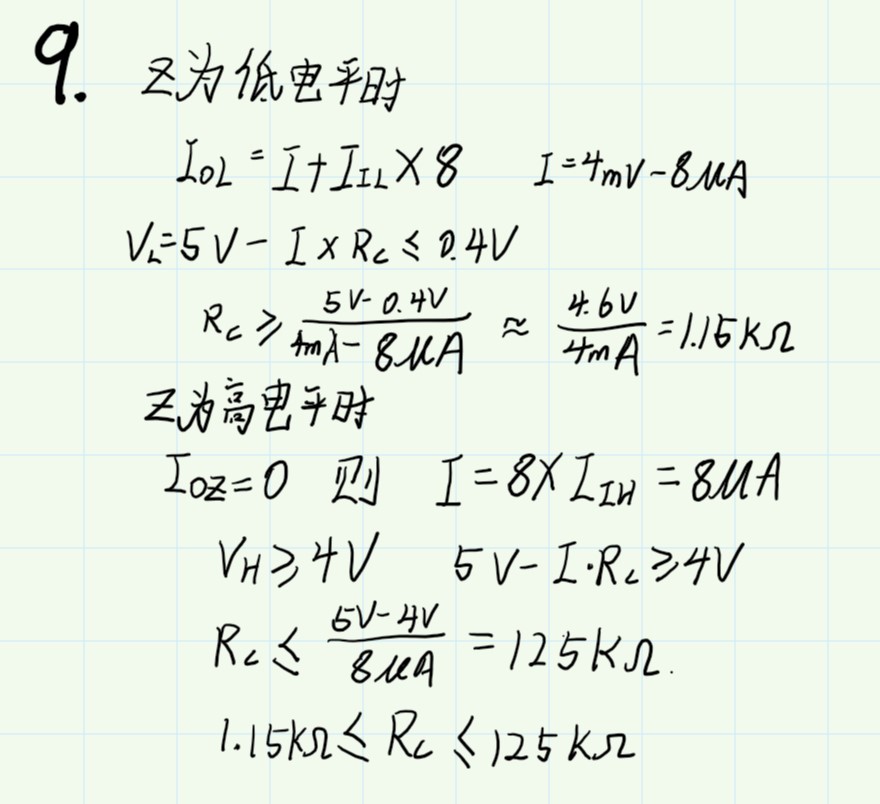 9. Z为低电平时
I_OL = I + I_IL × 8   I = 4mV - 8μA
V_L = 5V - I × R_c ≤ 0.4V
R_c ≥ (5V - 0.4V)/(4mA - 8μA) ≈ 4.6V/4mA = 1.15kΩ
Z为高电平时
I_OZ = 0 则 I = 8 × I_IH = 8μA
V_H ≥ 4V   5V - I·R_c ≥ 4V
R_c ≤ (5V - 4V)/8μA = 125kΩ.
1.15kΩ ≤ R_c ≤ 125kΩ